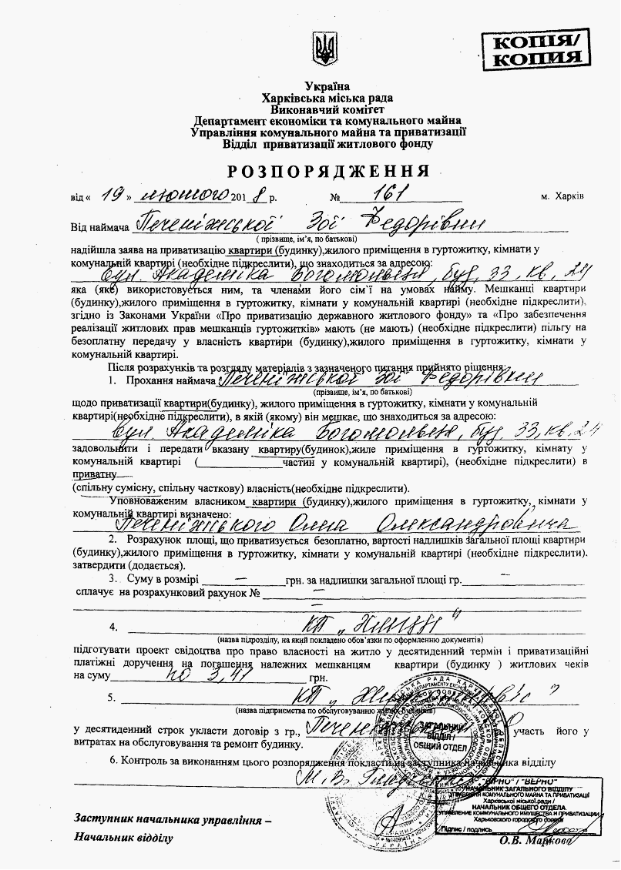 КОПІЯ/
КОПИЯ
Україна
Харківська міська рада
Виконавчий комітет
Департамент економіки та комунального майна
Управління комунального майна та приватизації
Відділ приватизації житлового фонду
РОЗПОРЯДЖЕННЯ
від « 19 » лютого 2018 р. № 161 м. Харків
Від наймача Печеніжської Зої Федорівни
( прізвище, ім’я, по батькові)
надійшла заява на приватизацію квартири (будинку),жилого приміщення в гуртожитку, кімнати у
комунальній квартирі (необхідне підкреслити), що знаходиться за адресою:
вул. Академіка Богомольця, буд. 33, кв. 24
яка (яке) використовується ним, та членами його сім’ї на умовах найму. Мешканці квартири
(будинку),жилого приміщення в гуртожитку, кімнати у комунальній квартирі (необхідне підкреслити),
згідно із Законами України «Про приватизацію державного житлового фонду» та «Про забезпечення
реалізації житлових прав мешканців гуртожитків» мають (не мають) (необхідне підкреслити) пільгу на
безоплатну передачу у власність квартири (будинку),жилого приміщення в гуртожитку, кімнати у
комунальній квартирі.
Після розрахунків та розгляду матеріалів з зазначеного питання прийнято рішення
1. Прохання наймача Печеніжської Зої Федорівни
(прізвище, ім’я, по батькові)
щодо приватизації квартири(будинку), жилого приміщення в гуртожитку, кімнати у комунальній
квартирі(необхідне підкреслити), в якій (якому) він мешкає, що знаходиться за адресою:
вул. Академіка Богомольця, буд. 33, кв. 24
задовольнити і передати вказану квартиру(будинок),жиле приміщення в гуртожитку, кімнату у
комунальній квартирі (____ частин у комунальній квартирі), (необхідне підкреслити) в
приватну
(спільну сумісну, спільну часткову) власність(необхідне підкреслити).
Уповноваженим власником квартири (будинку),жилого приміщення в гуртожитку, кімнати у
комунальній квартирі визначено:
Печеніжського Олександровича
2. Розрахунок площі, що приватизується безоплатно, вартості надлишків загальної площі квартири
(будинку),жилого приміщення в гуртожитку, кімнати у комунальній квартирі (необхідне підкреслити).
затвердити (додається).
3. Суму в розмірі — грн. за надлишки загальної площі гр. —
сплачує на розрахунковий рахунок № —
4. КП „
(назва підрозділу, на який покладено обов’язки по оформленню документів)
підготувати проект свідоцтва про право власності на житло у десятиденний термін і приватизаційні
платіжні доручення на погашення належних мешканцям квартири (будинку ) житлових чеків
на суму по 3,41 грн.
5. КП „
(назва підприємства по обслуговуванню
у десятиденний строк укласти договір з гр., участь його у
витратах на обслуговування та ремонт будинку.
6. Контроль за виконанням цього розпорядження покласти на заступника начальника відділу
М. В.
ЗАГАЛЬНИЙ
ВІДДІЛ /
ОБЩИЙ ОТДЕЛ
"ВІРНО" / "ВЕРНО"
НАЧАЛЬНИК ЗАГАЛЬНОГО ВІДДІЛУ
УПРАВЛІННЯ КОМУНАЛЬНОГО МАЙНА ТА ПРИВАТИЗАЦІЇ
Харківської міської ради /
НАЧАЛЬНИК ОБЩЕГО ОТДЕЛА
УПРАВЛЕНИЕ КОММУНАЛЬНОГО ИМУЩЕСТВА И ПРИВАТИЗАЦИИ
Харьковского городского совета
Підпис / подпись
Заступник начальника управління –
Начальник відділу О.В. Маркова